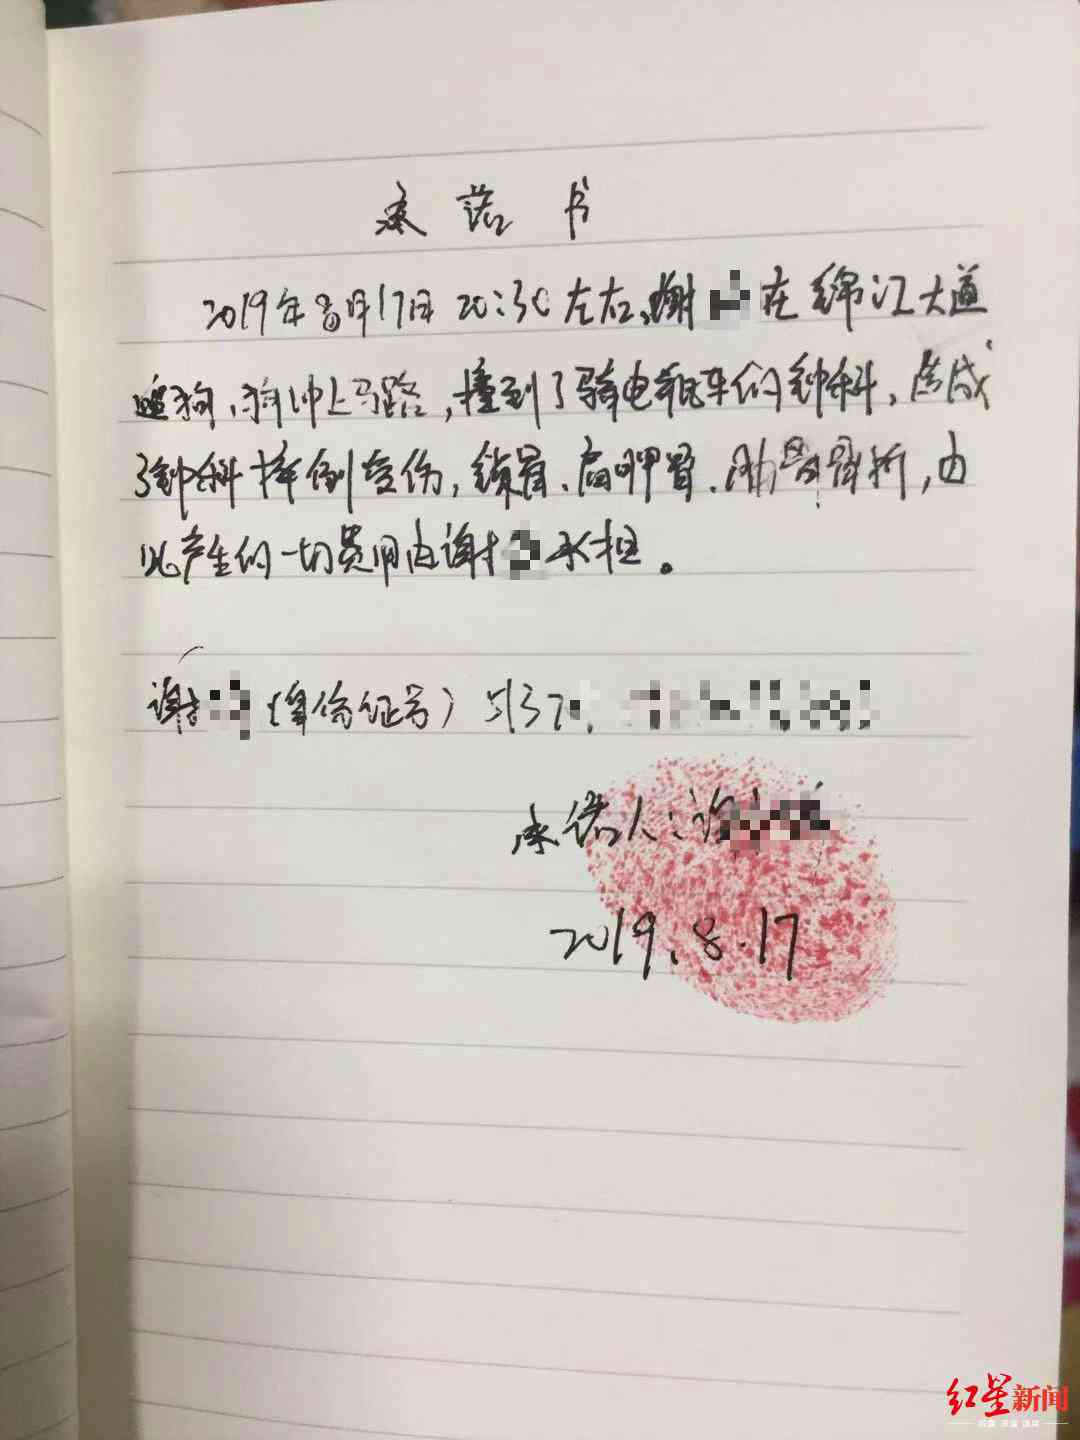 承诺书
2019年8月17日 20:30左右,谢在锦江大道
遛狗,狗冲上马路,撞到了骑电瓶车的钟科,造成
了钟科摔倒受伤,锁骨、肩胛骨、肋骨骨折,由
此产生的一切费用由谢承担。
谢(身份证号)5137
承诺人:谢
2019.8.17
红星新闻